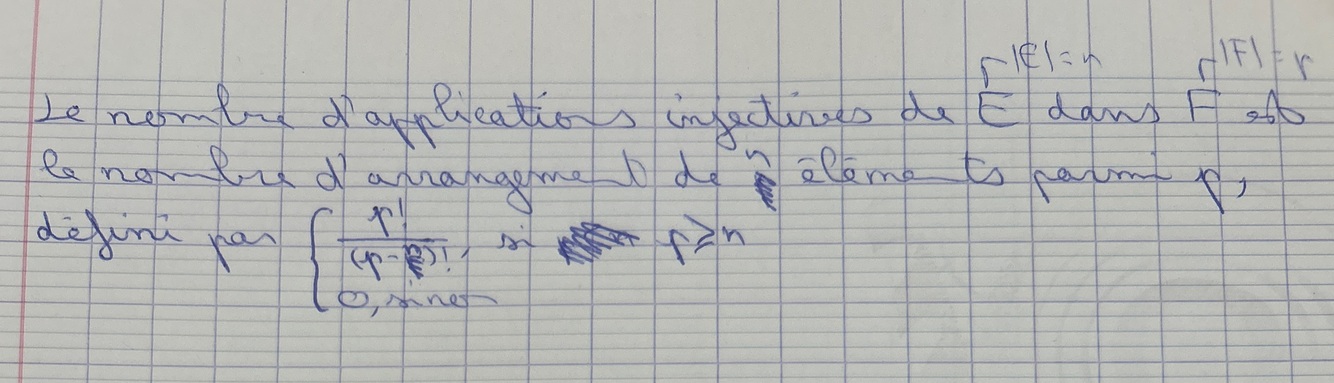 |E|=n |F|=p
Le nombre d'applications injectives de E dans F est
le nombre d'arrangement de n éléments parmi p,
défini par { p!/(p-n)!, si p≥n
0, sinon